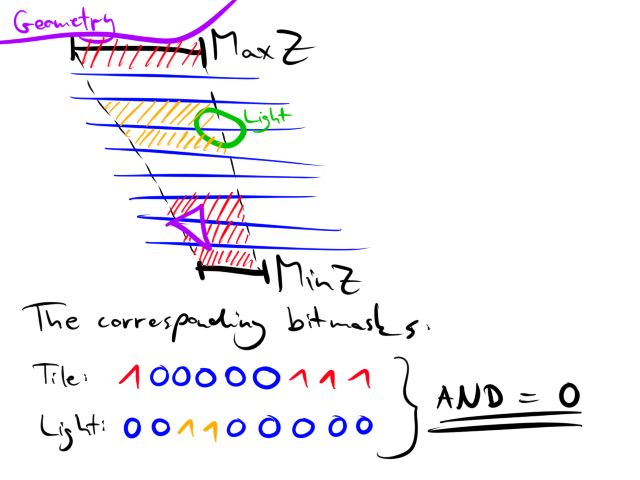 Geometry
Max Z
Light
Min Z
The corresponding bitmasks:
Tile: 1 0 0 0 0 0 1 1 1
Light: 0 0 1 1 0 0 0 0 0
AND = 0